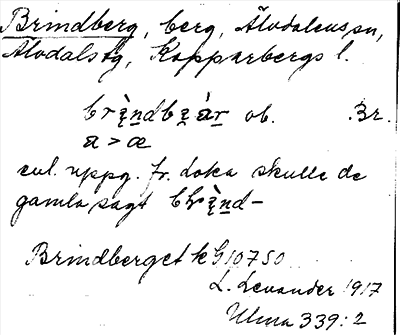 Brindberg, berg, Älvdalens sn,
Älvdals tg, Kopparbergs l.
brị̀ndbạ̈́r ob. Br.
a > æ
enl. uppg. fr. Loka skulle de
gamla sagt brị̀nd-
Brindberget k G 10750
L. Levander 1917
Ulma 339:2